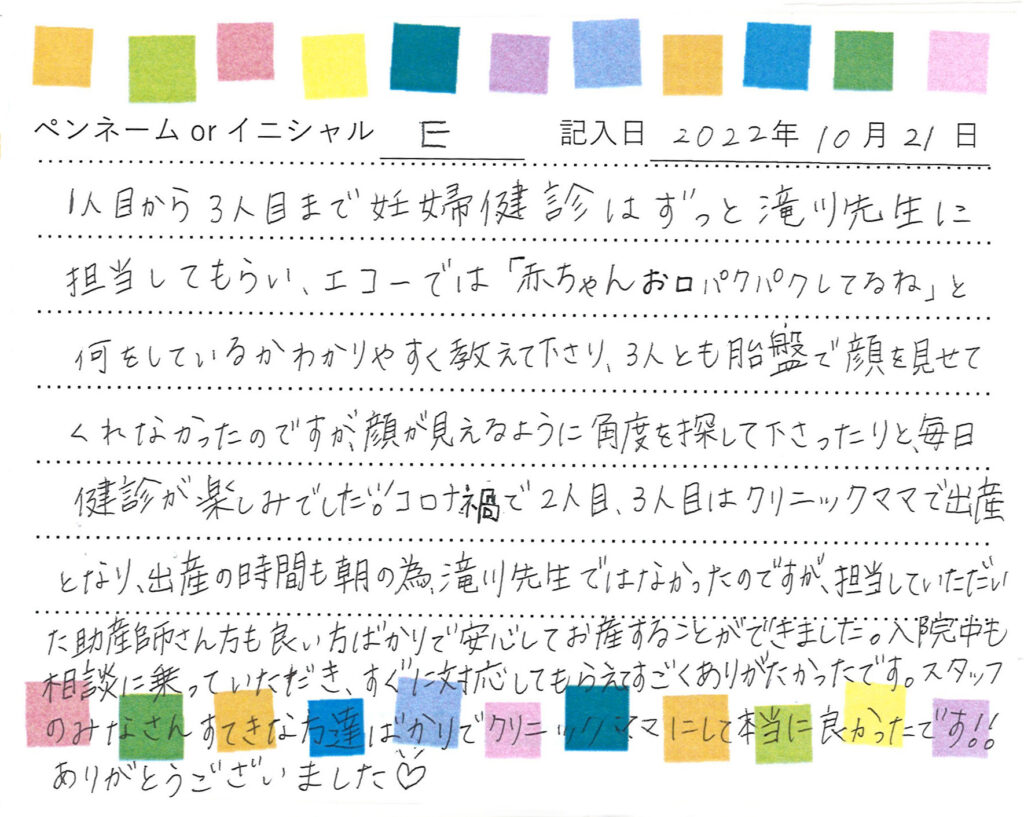 ペンネーム or イニシャル E 記入日 2022年 10月 21日
1人目から3人目まで妊婦健診はずっと滝川先生に
担当してもらい、エコーでは「赤ちゃんお口パクパクしてるね」と
何をしているかわかりやすく教えて下さり、3人とも胎盤で顔を見せて
くれなかったのですが、顔が見えるように角度を探して下さったりと、毎日
健診が楽しみでした!!コロナ禍で2人目、3人目はクリニックママで出産
となり、出産の時間も朝の為、滝川先生ではなかったのですが、担当していただい
た助産師さん方も良い方ばかりで安心してお産することができました。入院中も
相談に乗っていただき、すぐに対応してもらえてすごくありがたかったです。スタッフ
のみなさんすてきな方達ばかりでクリニックママにして本当に良かったです!!
ありがとうございました♡